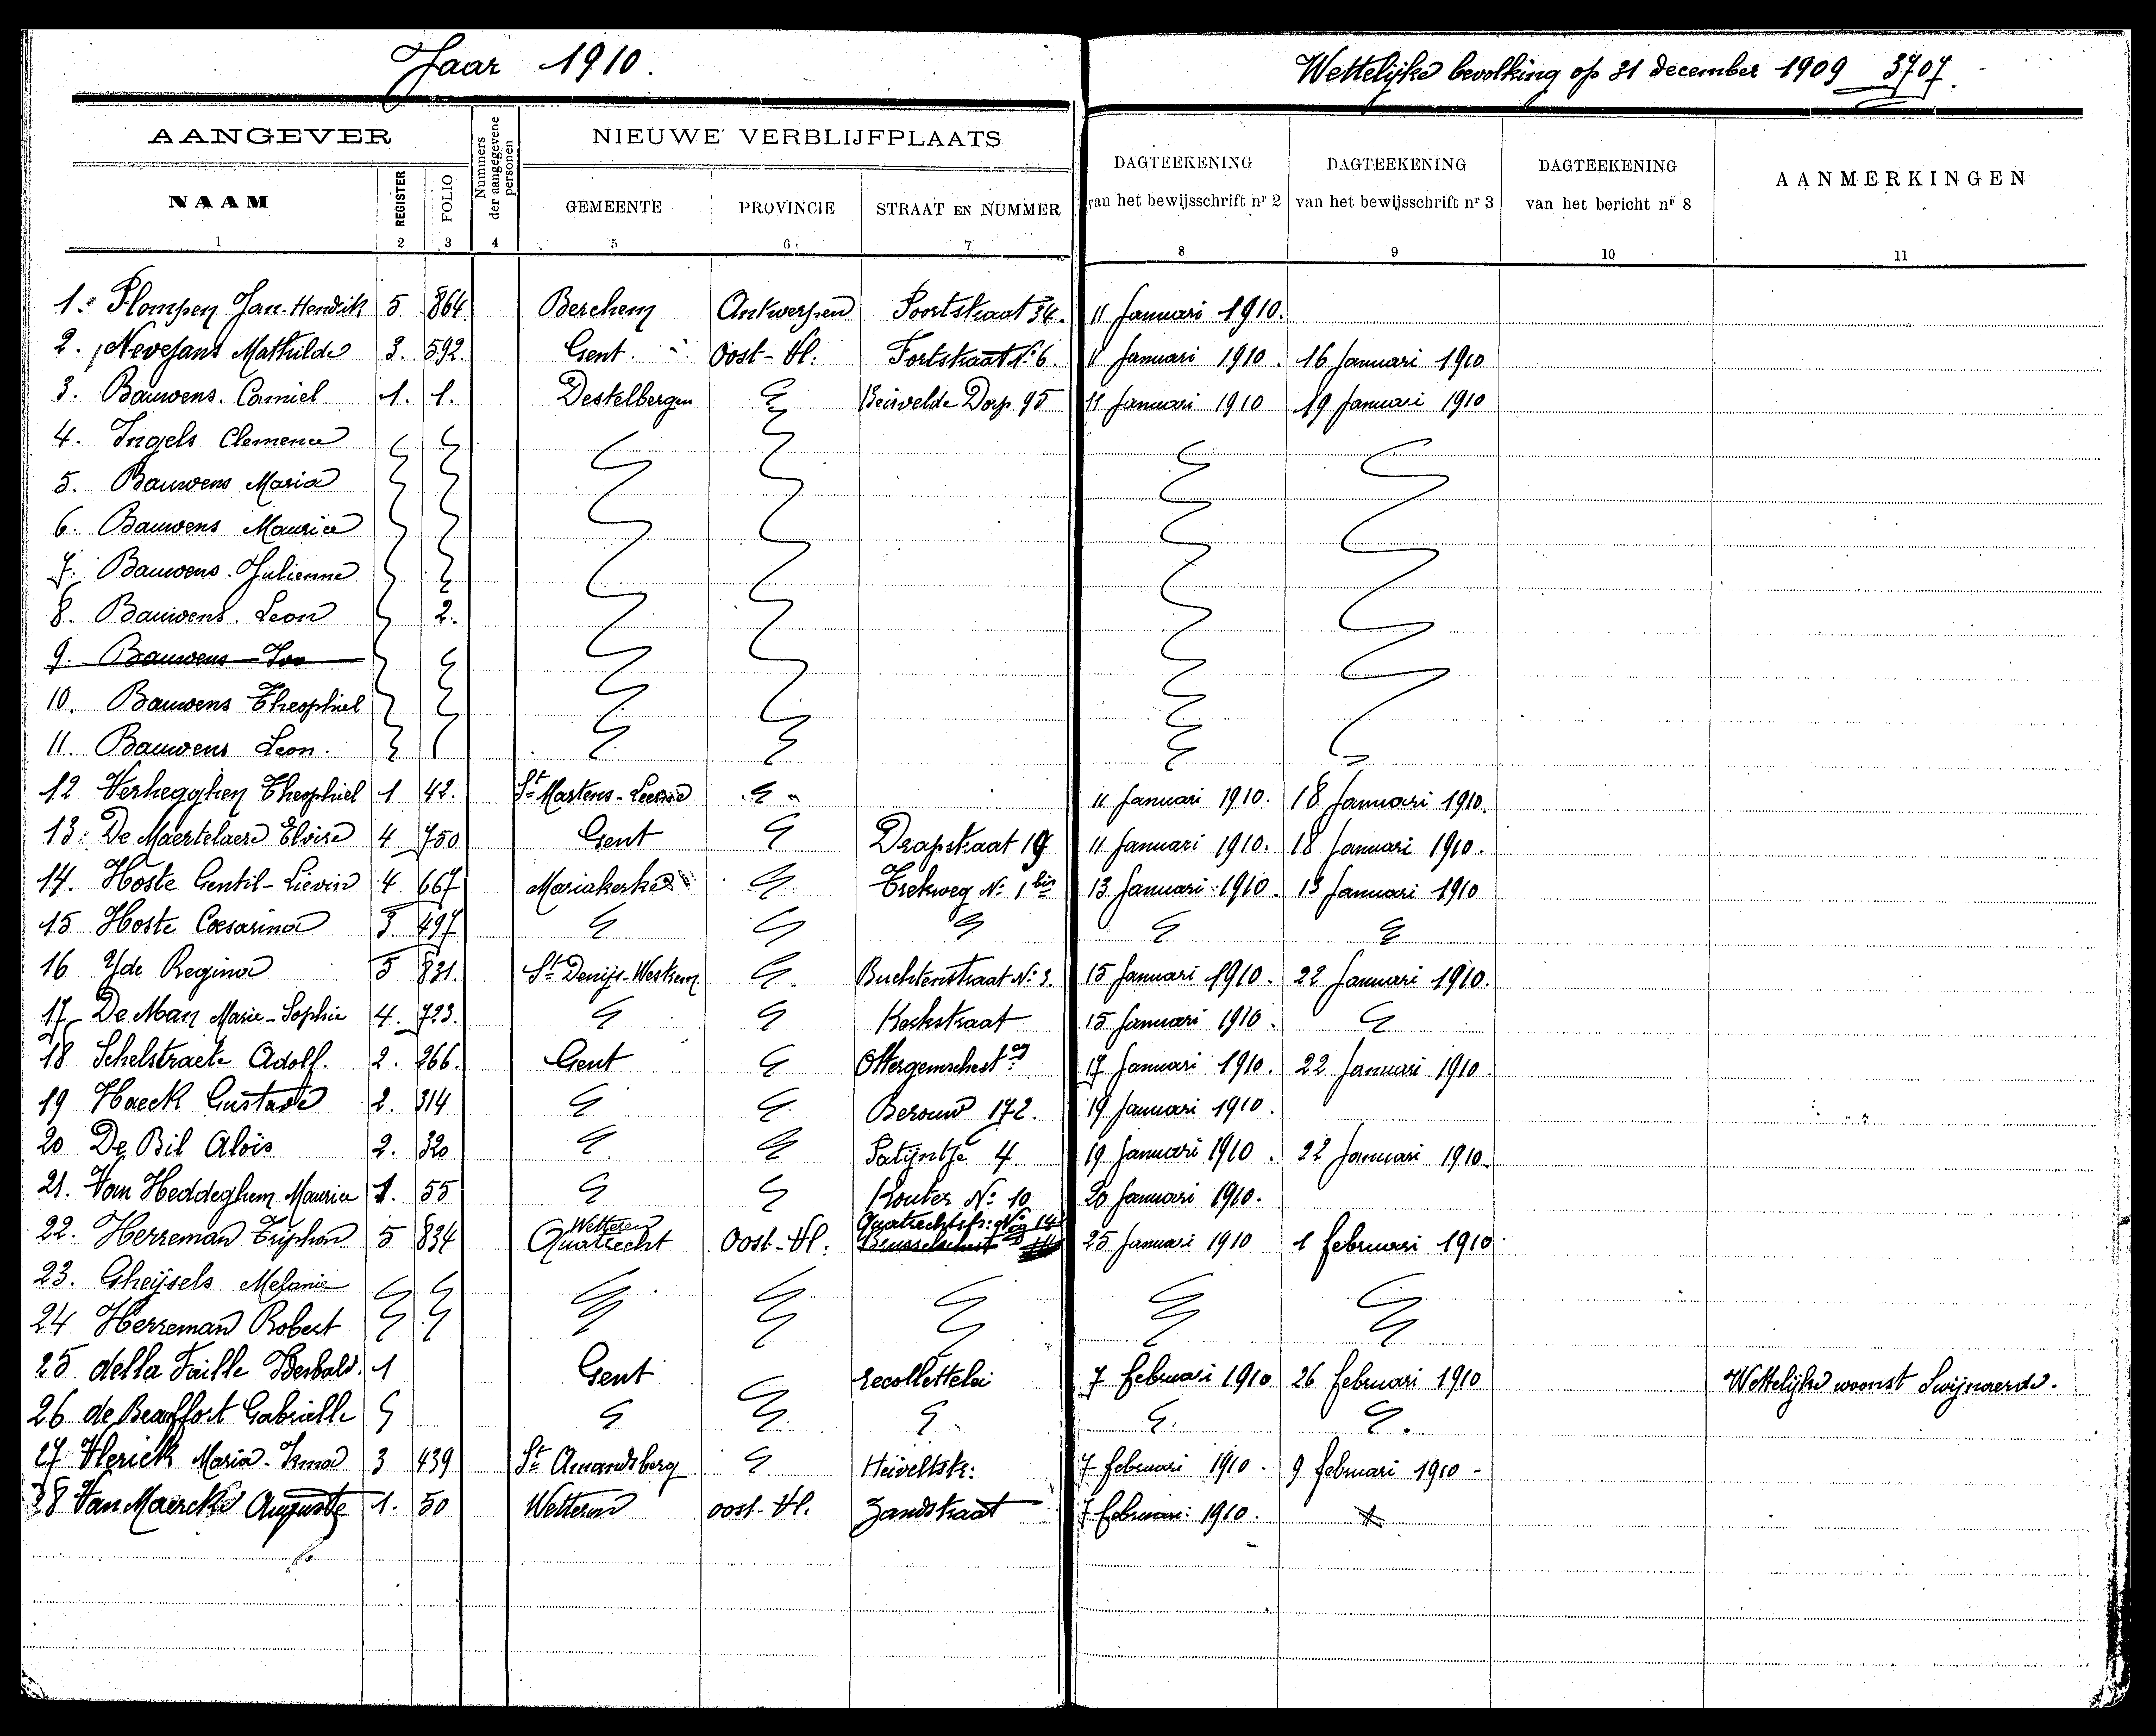 Jaar 1910.
Wettelijke bevolking op 31 december 1909 3707.
AANGEVER
NIEUWE VERBLIJFPLAATS
NAAM REGISTER FOLIO Nummers der aangegevene personen GEMEENTE PROVINCIE STRAAT EN NUMMER DAGTEEKENING van het bewijsschrift nr 2 DAGTEEKENING van het bewijsschrift nr 3 DAGTEEKENING van het bericht nr 8 AANMERKINGEN
1 2 3 4 5 6 7 8 9 10 11
1. Plompen Jan-Hendrik 5 864 Berchem Antwerpen Poortstraat 34. 11 Januari 1910.
2. Nevejans Mathilde 3. 592. Gent. Oost-Vl. Fortstraat No 6. 11 Januari 1910. 16 Januari 1910
3. Bauwens. Camiel 1. 1. Destelbergen Beirvelde Dorp 95 11 Januari 1910 19 Januari 1910
4. Ingels Clemence
5. Bauwens Maria
6. Bauwens Maurice
7. Bauwens. Julienne
8. Bauwens. Leon 2.
9. Bauwens
10. Bauwens Theophiel
11. Bauwens Leon.
12 Verhegghen Theophiel 1 42. St Martens-Leerne 11 Januari 1910. 18 Januari 1910.
13. De Maertelaere Eloïse 4 750 Gent Drapstraat 19 11 Januari 1910. 18 Januari 1910.
14. Hoste Gentil-Lievin 4 667 Mariakerke Trekweg No 1 bis 13 Januari 1910. 13 Januari 1910
15 Hoste Coesarina 3 497
16 Yde Regina 5 831. St Denijs-Westrem Buchtenstraat No 3. 15 Januari 1910. 22 Januari 1910.
17 De Man Marie-Sophie 4. 723. Kerkstraat 15 Januari 1910.
18 Schelstraete Adolf. 2. 266. Gent Ottergemschest 17 Januari 1910. 22 Januari 1910.
19 Haeck Gustave 2. 314 Berouw 172. 19 Januari 1910.
20 De Bil Aloïs 2. 320 Patijntje 4. 19 Januari 1910. 22 Januari 1910.
21. Van Heddeghem Maurice 1. 55 Kouter No 10 20 Januari 1910.
22. Herreman Triphon 5 834 Wetteren Quatrecht Oost-Vl. 25 Januari 1910 1 februari 1910
23. Gheijsels Melanie
24 Herreman Robert
25 della Faille 1 Gent recollettelei 7 februari 1910 26 februari 1910 Wettelijke woonst Swijnaerde.
26 de Beauffort Gabrielle
27 Vlerick Maria-Irma 3 439 St Amandsberg Heiveltstr: 7 februari 1910. 9 februari 1910-
28 Van Maercke Auguste 1. 50 Wetteren oost-Vl. Zandstraat 7 februari 1910.